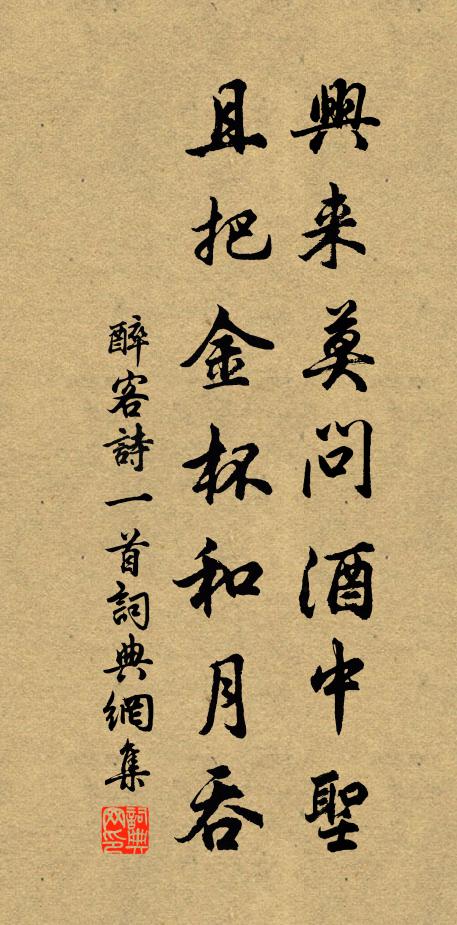 興来莫問酒中聖
且把金杯和月吞
醉客詩一首詞典網集
詞典网印